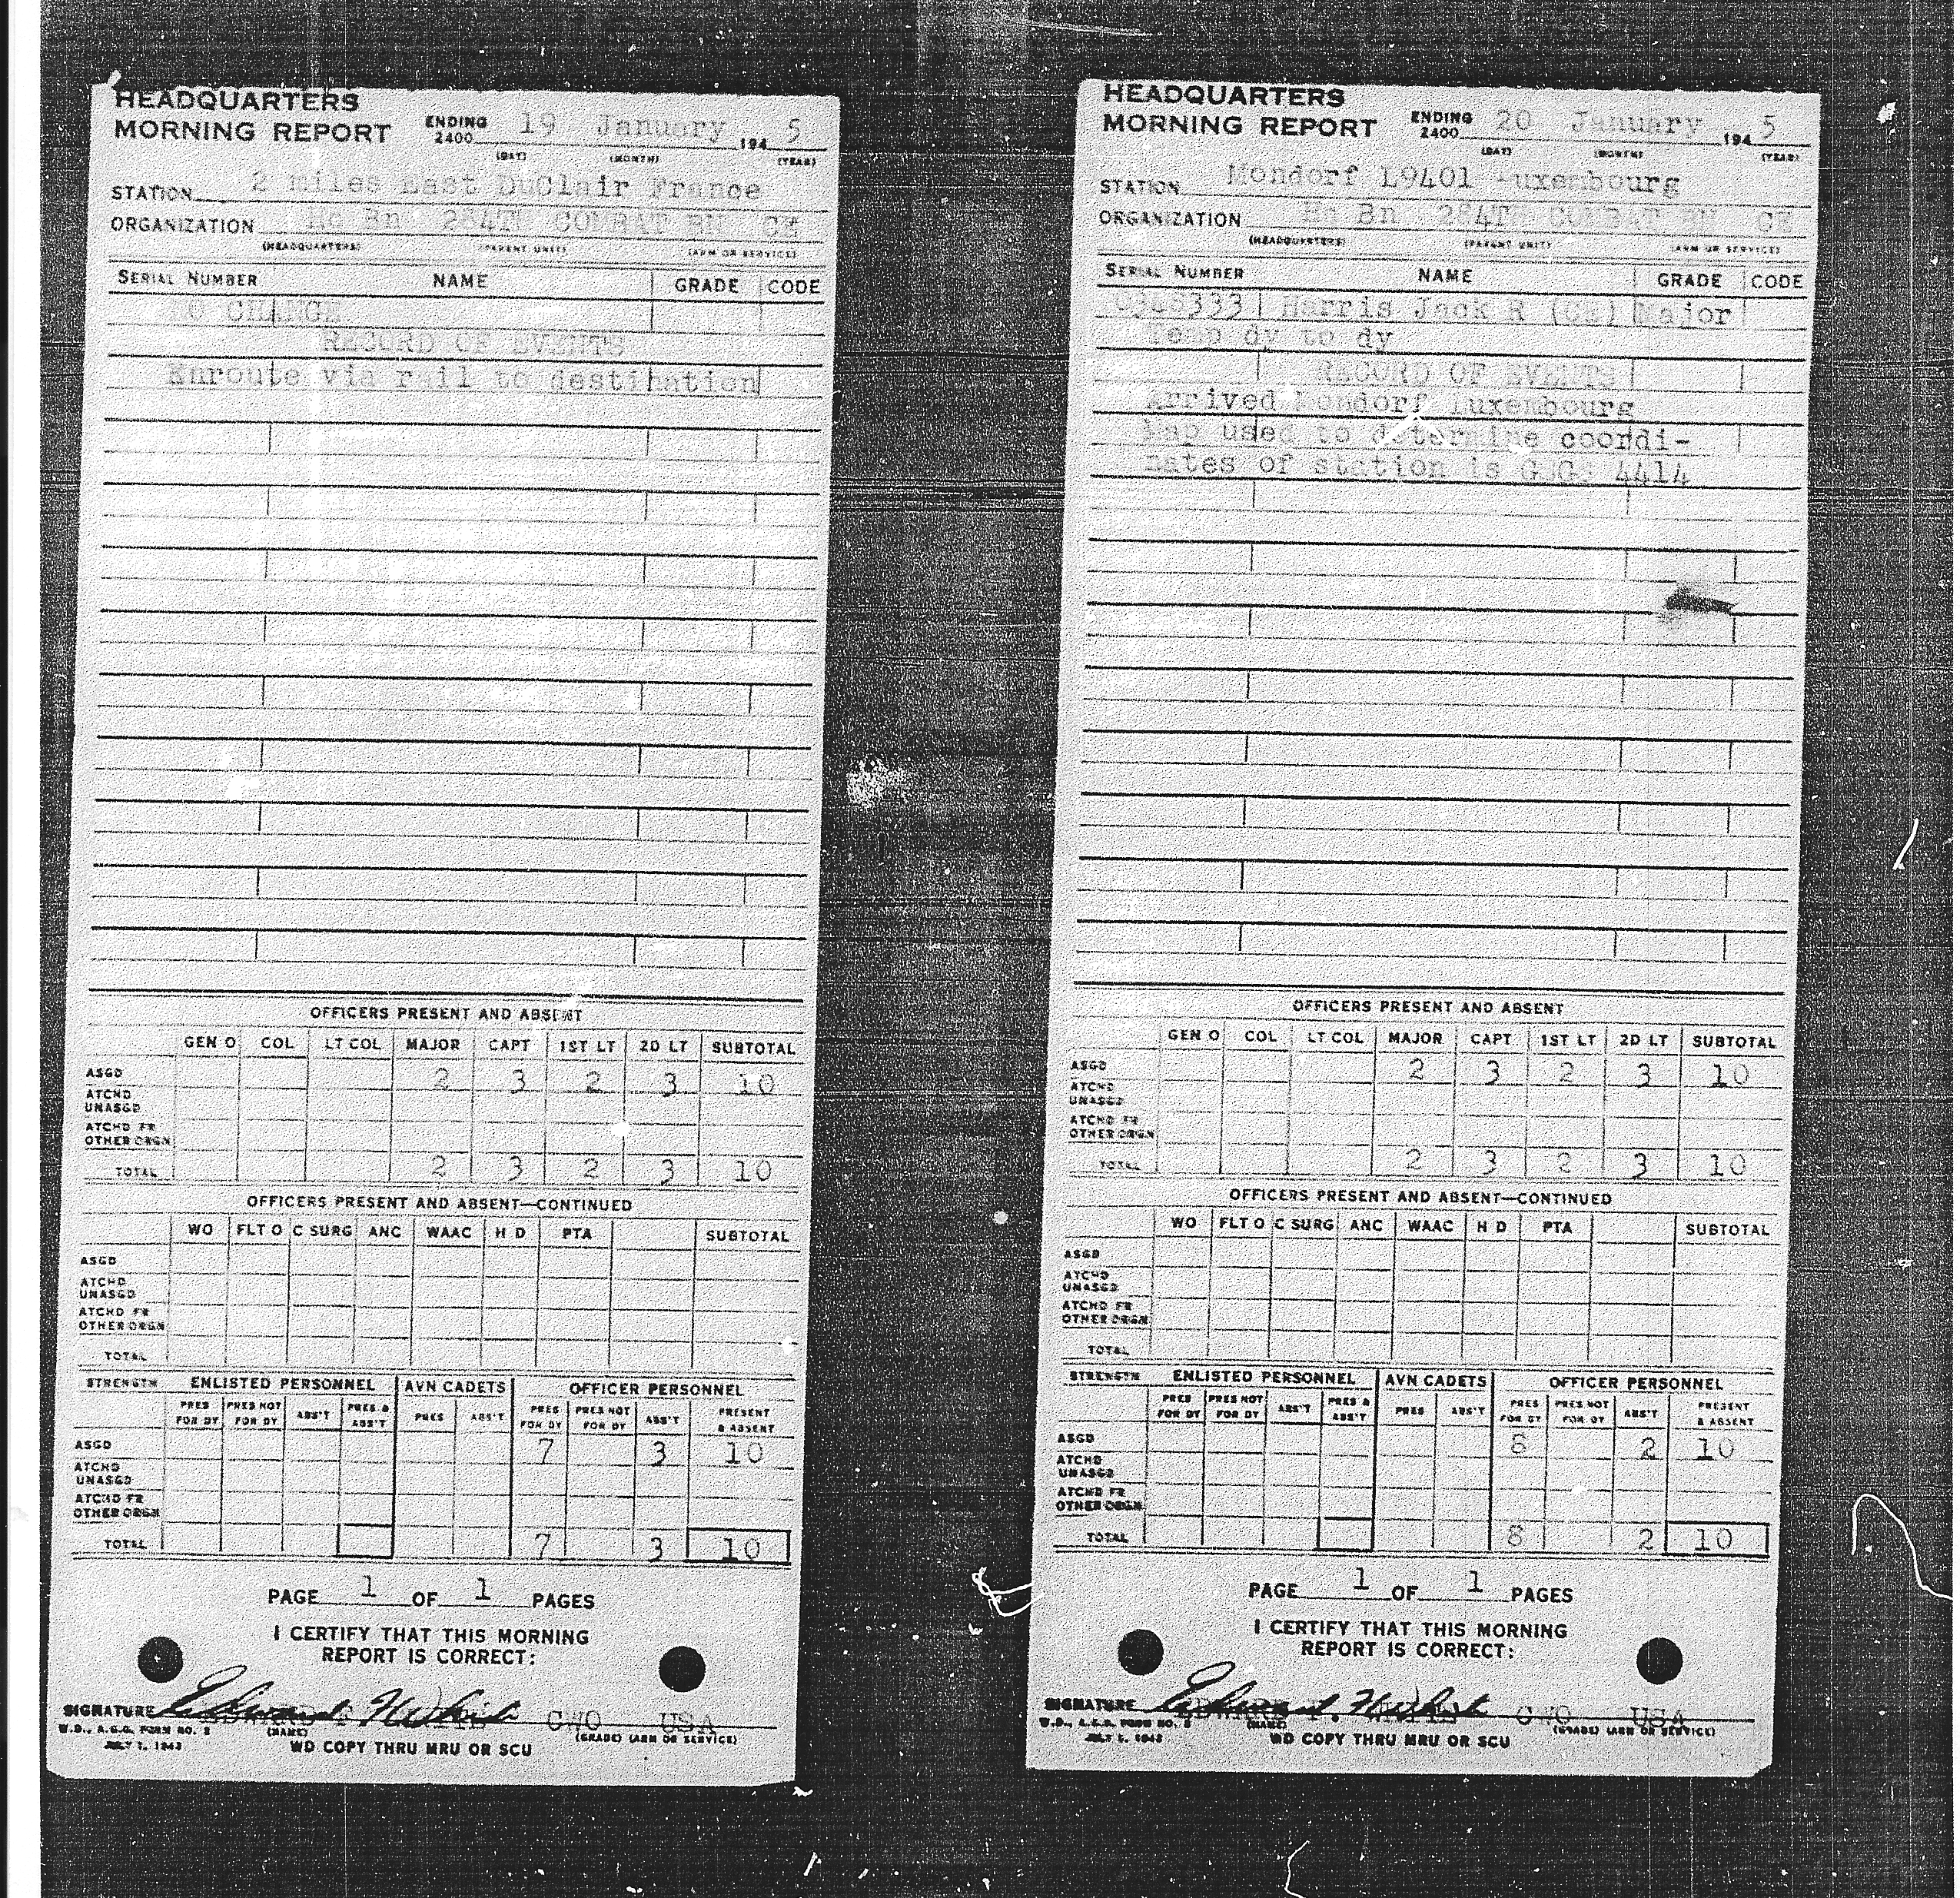 HEADQUARTERS
MORNING REPORT ENDING 2400 19 January 194 5
(DAY) (MONTH) (YEAR)
STATION 2 miles East DuClair France
ORGANIZATION Hq Bn 284TH COMBAT BN CE
(HEADQUARTERS) (PARENT UNIT) (ARM OR SERVICE)
SERIAL NUMBER NAME GRADE CODE
NO CHANGE
RECORD OF EVENTS
Enroute via rail to destination
OFFICERS PRESENT AND ABSENT
GEN O COL LT COL MAJOR CAPT 1ST LT 2D LT SUBTOTAL
ASGD 2 3 2 3 10
ATCHD
UNASGD
ATCHD FR
OTHER ORGN
TOTAL 2 3 2 3 10
OFFICERS PRESENT AND ABSENT—CONTINUED
WO FLT O C SURG ANC WAAC H D PTA SUBTOTAL
ASGD
ATCHD
UNASGD
ATCHD FR
OTHER ORGN
TOTAL
STRENGTH ENLISTED PERSONNEL AVN CADETS OFFICER PERSONNEL
PRES FOR DY PRES NOT FOR DY ABS'T PRES & ABS'T PRES ABS'T PRES FOR DY PRES NOT FOR DY ABS'T PRESENT & ABSENT
ASGD 7 3 10
ATCHD
UNASGD
ATCHD FR
OTHER ORGN
TOTAL 7 3 10
PAGE 1 OF 1 PAGES
I CERTIFY THAT THIS MORNING
REPORT IS CORRECT:
SIGNATURE EDWARD CWO USA
W.D., A.G.O. FORM NO. (NAME) (GRADE) (ARM OR SERVICE)
JULY 1, 1943 WD COPY THRU MRU OR SCU
HEADQUARTERS
MORNING REPORT ENDING 2400 20 January 194 5
(DAY) (MONTH) (YEAR)
STATION Mondorf L9401 Luxembourg
ORGANIZATION Hq Bn 284TH COMBAT BN CE
(HEADQUARTERS) (PARENT UNIT) (ARM OR SERVICE)
SERIAL NUMBER NAME GRADE CODE
0348333 Harris Jack R (CE) Major
Temp dy to dy
RECORD OF EVENTS
Arrived Mondorf Luxembourg
Map used to determine coordi-
nates of station is GSGS 4414
OFFICERS PRESENT AND ABSENT
GEN O COL LT COL MAJOR CAPT 1ST LT 2D LT SUBTOTAL
ASGD 2 3 2 3 10
ATCHD
UNASGD
ATCHD FR
OTHER ORGN
TOTAL 2 3 2 3 10
OFFICERS PRESENT AND ABSENT—CONTINUED
WO FLT O C SURG ANC WAAC H D PTA SUBTOTAL
ASGD
ATCHD
UNASGD
ATCHD FR
OTHER ORGN
TOTAL
STRENGTH ENLISTED PERSONNEL AVN CADETS OFFICER PERSONNEL
PRES FOR DY PRES NOT FOR DY ABS'T PRES & ABS'T PRES ABS'T PRES FOR DY PRES NOT FOR DY ABS'T PRESENT & ABSENT
ASGD 8 2 10
ATCHD
UNASGD
ATCHD FR
OTHER ORGN
TOTAL 8 2 10
PAGE 1 OF 1 PAGES
I CERTIFY THAT THIS MORNING
REPORT IS CORRECT:
SIGNATURE EDWARD CWO USA
W.D., A.G.O. FORM NO. (NAME) (GRADE) (ARM OR SERVICE)
JULY 1, 1943 WD COPY THRU MRU OR SCU